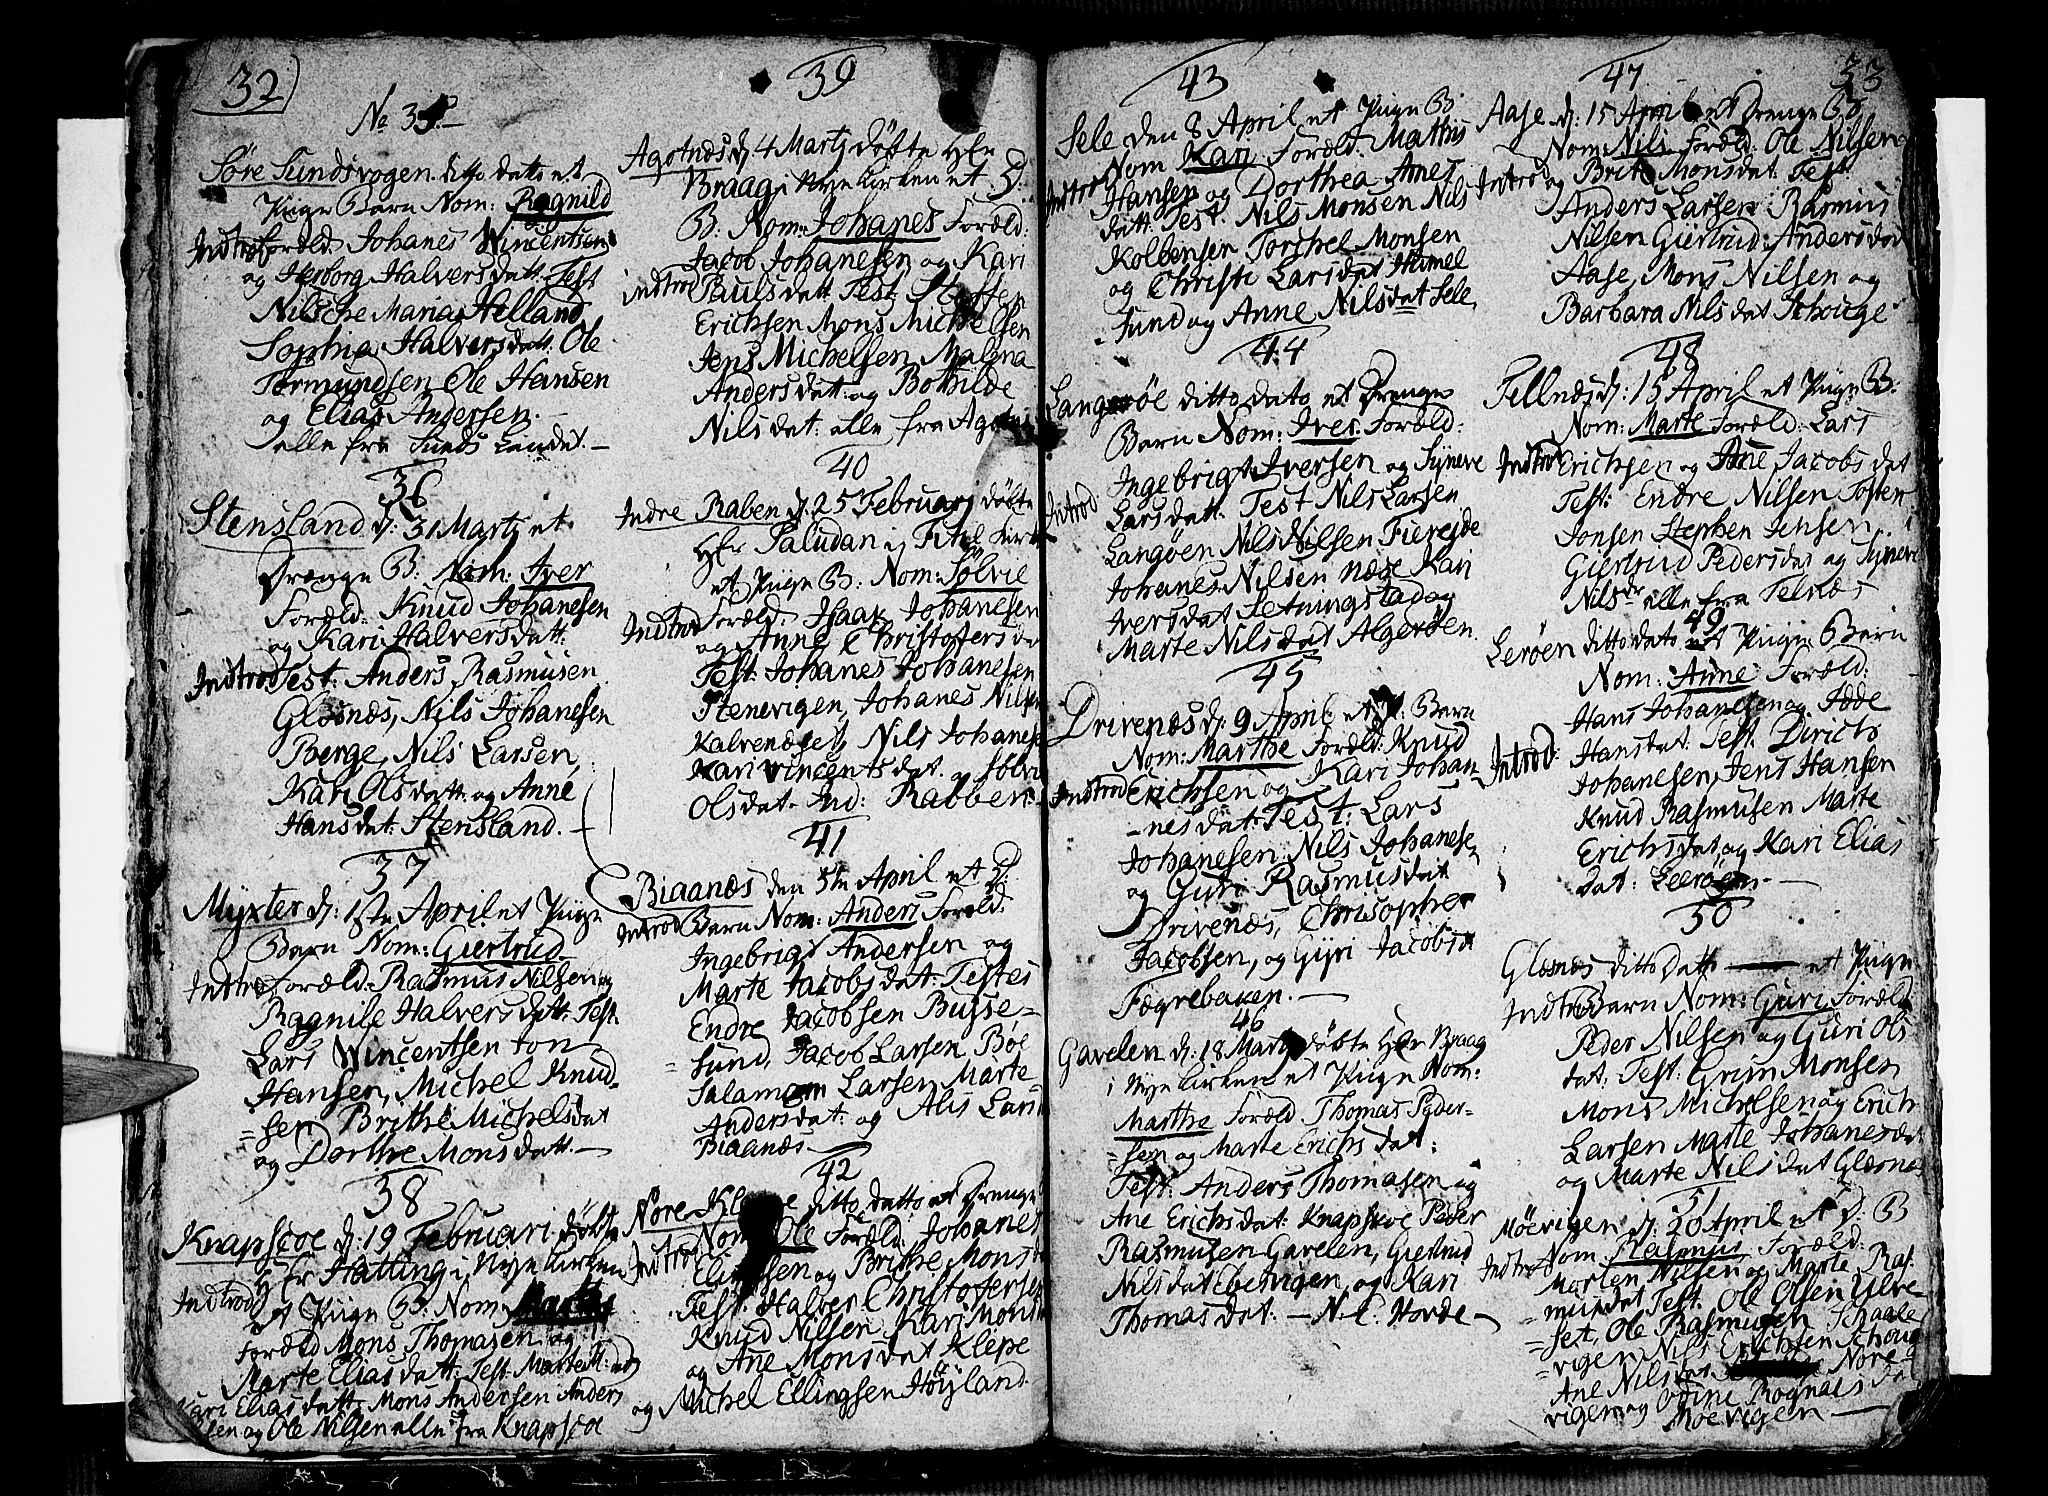 32
No 35
Søre Sundsvogen ditto datto et
Pige Barn Nom: Ragnild
Indtro Foræld: Johanes Wincentsen
og Herborg Halversdatt: Test
Nilsche Maria Helland
Sophia Halversdatt: Ole
Tormundsen Ole Hansen
og Elias Andersen.
alle fra Sunds Landet.
36
Stensland d: 31 Martj et
Drænge B: Nom: Iver
Foræld: Knud Johanesen
og Kari Halversdatt:
Indtrod Test: Anders Rasmusen
Glæsnæs, Nils Johanesen
Berge, Nils Larsen,
Kari Olsdatt: og Anne
Hansdat: Stensland.
37
Myxter d: 1ste April et Pige
Barn Nom: Giertrud
Indtro Foræld: Rasmus Nilsen og
Ragnile Halversdatt: Test
Lars Wincentsen Jon
Hansen, Michel Knud-
sen Brithe Michelsdat
og Dorthe Monsdatt.
38
Knapscoe d: 19 Februari døbte
Hr Hatting i Nye Kirken
Indtrod et Pige B: Nom: Marthe
Foræld Mons Thomasen og
Marte Eliasdatt: Test Marte
Kari Eliasdatt: Mons Andersen Anders
Olsen og Ole Nilsen alle fra Knapscoe
39
Agotnæs d: 4 Martj døbte Hr
Braag i Nye Kirken et D:
B: Nom: Johanes Foræld:
Jacob Johanesen og Kari
Indtrod Paulsdatt: Test Stephen
Erichsen Mons Michelsen
Jens Michelsen Malena
Andersdat: og Bothilde
Nilsdat: alle fra Agotnæs
40
Indre Raben d: 25 Februarj døbte
Hr Paludan i Fitiel Kirke
et Pige B: Nom: Sølvie
Indtrod Foræld: Isaax Johanesen
og Anne Christofersda
Test: Johanes Johanesen
Stenevigen, Johanes Nilsen
Kalvenæset, Nils Johanese
Kari Vincentsdat. og Sølvi
Olsdat. Ind: Rabben.
41
Biaanæs den 5te April et D:
Introd Barn Nom: Anders Foræld:
Ingebrigt Andersen og
Marte Jacobsdat: Testes
Endre Jacobsen Busse-
sund, Jacob Larsen Bøe
Salamom Larsen, Marte
Andersdat: og Alis Lars
Biaanæs
42
Nore Kleppe ditto datto et Drenge
Nom Ole Foræld: Johanes
Indtrod Ellingsen og Brithe Mons
Test: Halver Christofersen
Knud Nilsen, Kari Mons
og Ane Monsdat Klepe
og Michel Ellingsen Høyland
43
Sele den 8 April et Pige B:
Nom Kari Foræld: Mathis
Indtro Hansen og Dorthea Anes
datt: Test. Nils Monsen Nils
Kolbensen Torchel Monsen
og Christi Larsdat Humel
Sund og Anne Nilsdat Sele
44
Langerøe ditto dato et Drenge
Barn Nom: Iver Foræld:
Ingebrigt Iversen og Synneve
Introd Larsdatt. Test Nils Larsen
Langøen Nils Nilsen Fierejde
Johanes Nilsen Næse Kari
Iversdat Setningstad og
Marte Nilsdat Algerøen
45
Drivenæs d: 9 April et P: Barn
Nom: Marthe Foræld: Knud
Indtrod Erichsen og Kari Johan-
nesdat: Test: Lars
Johanesen, Nils Johanese
og Guri Rasmusdat
Drivenæs, Chrisopher
Jacobsen, og Gyri Jacobsd
Fægrebaken.
46
Gavelen d: 18 Martj døbte Hr Braag
i Nye Kirken et Pige Nom:
Marthe Foræld. Thomas Peder-
sen og Marte Erichsdat:
Test: Anders Thomasen og
Ane Erichsdat: Knapskoe Peder
Rasmusen Gavelen, Giertrud
Nilsdat Ebevigen, og Kari
Thomasdat:
33
47
Aase d: 15 April et Drenge B:
Nom: Nils Foræld: Ole Nilsen
Introd og Brite Monsdat: Test
Anders Larsen Rasmus
Nilsen Giertrud Andersdat
Aase, Mons Nilsen og
Barbara Nilsdat Schouge
48
Tellnæs d: 15 April et Pige B:
Nom: Marte Foræld: Lars
Indtro Erichsen og Ane Jacobsdat
Test: Endre Nilsen Tosten
Jonsen Stephen Jensen
Giertrud Pedersdat og Synneve
Nilsdr alle fra Telnæs
49
Lerøen ditto dato et Pige Barn
Nom: Anne Foræld:
Hans Johanesen og Idde
Introd: Hansdat: Test. Dirichs
Johanesen, Jens Hansen
Knud Rasmusen Marte
Erichsdat og Kari Elias
dat: Leerøen.
50
Glæsnæs ditto datto et Pige
Indtro Barn Nom: Guri Foræld
Peder Nilsen og Guri Ols
dat: Test: Grim Monsen
Mons Michelsen og Erich
Larsen Marte Johanesdat
og Marte Nilsdat Glæsnæ
51
Møevigen d: 20 April et D: B
Indtro Nom. Rasmus Foræld:
Morten Nilsen og Marte Ras
musdat Test. Ole Olsen Ulve-
set, Ole Rasmusen Schaale
vigen Nils Erichsen Schoug
Ane Nilsdat Nore-
vigen og Rognalsdat
Møevigen